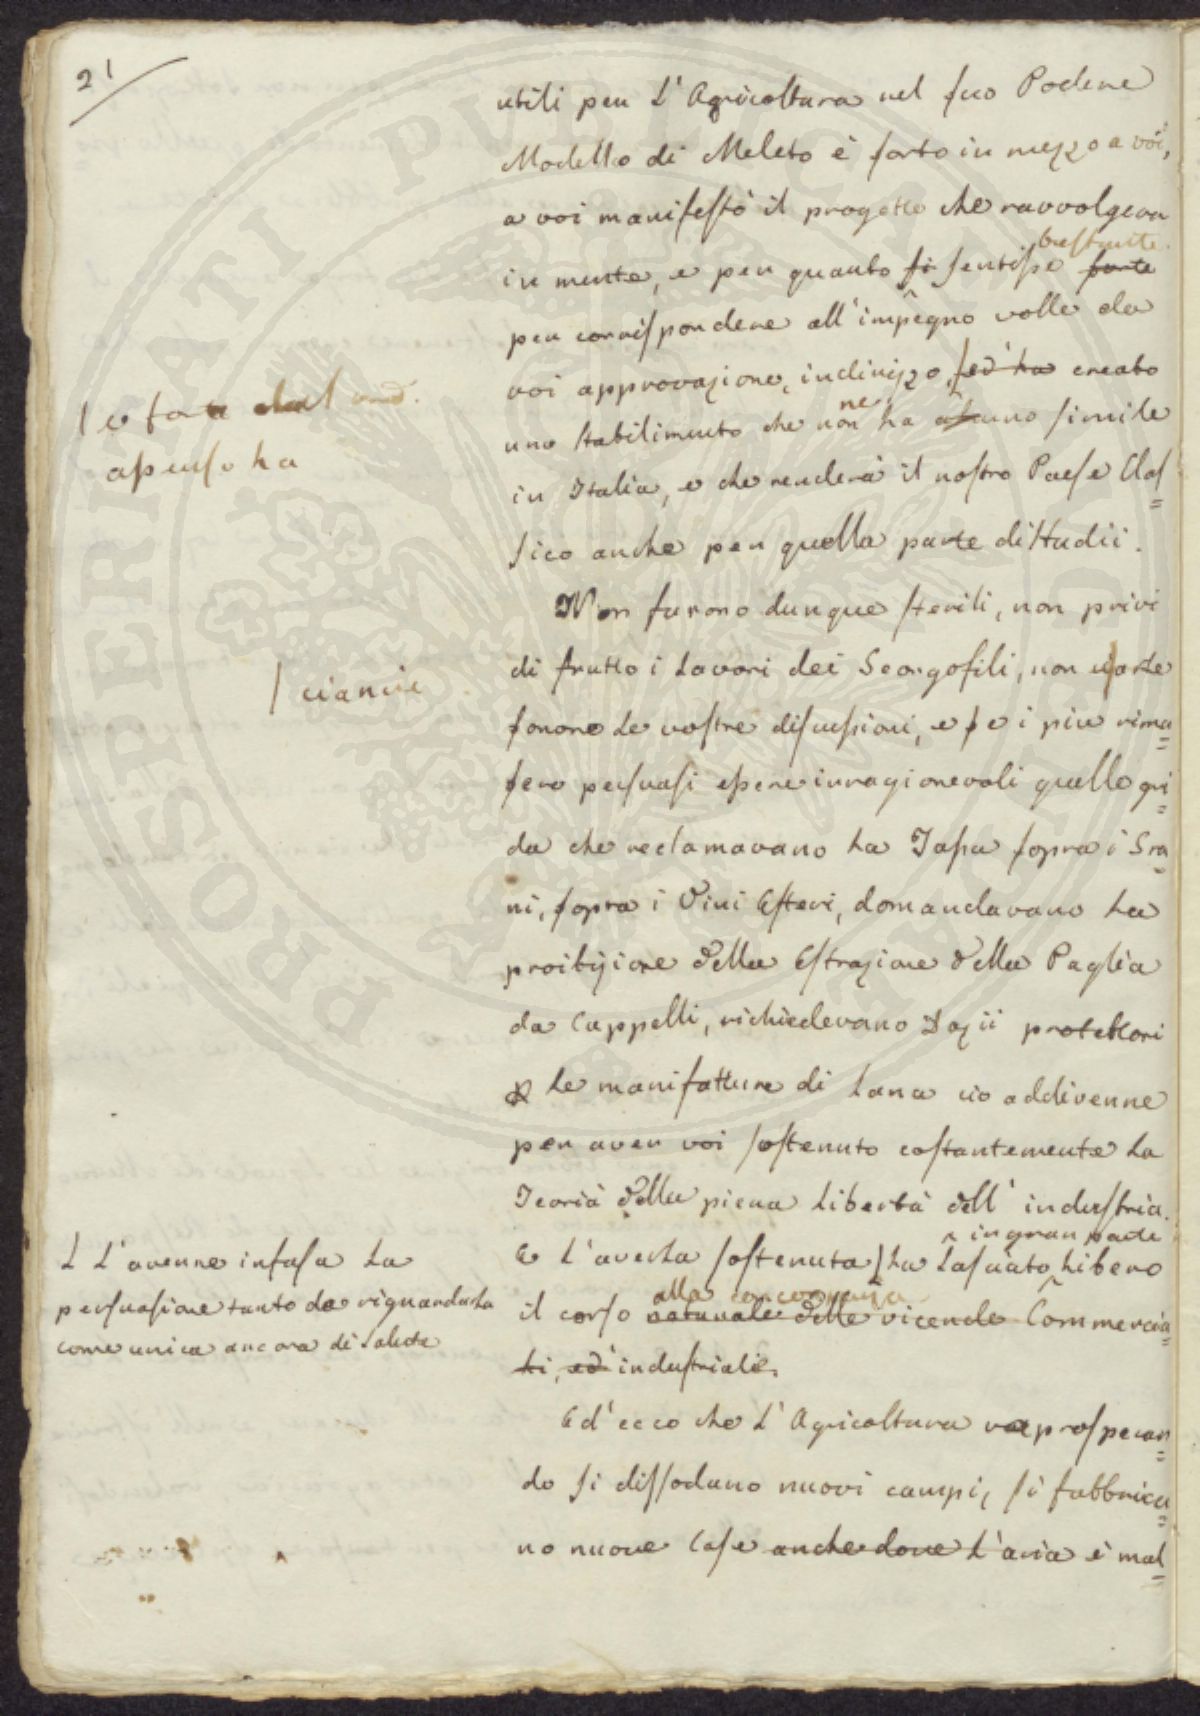 21
utili per l'Agricoltura nel suo Podere
Modello di Meleto è sorto in mezzo a voi,
a voi manifestò il progetto che ravvolgeva
bastante
in mente, e per quanto si sentisse forte
per corrispondere all'impegno volle da
voi approvazione, indirizzo, ed ha creato
ne
uno stabilimento che non ha alcuno simile
in Italia, e che renderà il nostro Paese Clas=
sico anche per quella parte di Studii.
Non furono dunque sterili, non privi
di frutto i lavori dei Georgofili, non
furono le vostre discussioni, e se i più rima=
sero persuasi essere irragionevoli quelle gri=
da che reclamavano la Tassa sopra i Gra=
ni, sopra i Vini Esteri, domandavano la
proibizione della Estrazione della Paglia
da Cappelli, richiedevano Dazii protettori
le manifatture di Lana ciò addivenne
per aver voi sostenuto costantemente la
Teoria della piena libertà dell'industria.
in gran parte
E l'averla sostenuta ha lasciato libero
alla concorrenza
il corso naturale delle vicende Commercia=
li, ed industriali.
Ed ecco che l'Agricoltura va prosperan=
do si dissodano nuovi campi, si fabbrica=
no nuove Case anche dove l'aria è mal=
e fatta
assenso ha
ciancie
L'averne infusa la
persuasione tanto da riguardarla
come unica ancora di salute